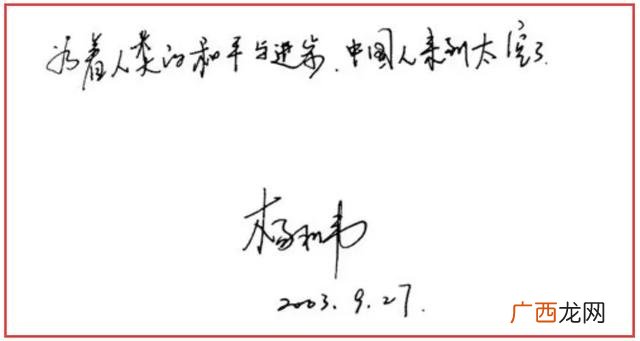 为着人类的和平与进步、中国人来到太空了.
杨利伟
2003.9.27.
广西龙网